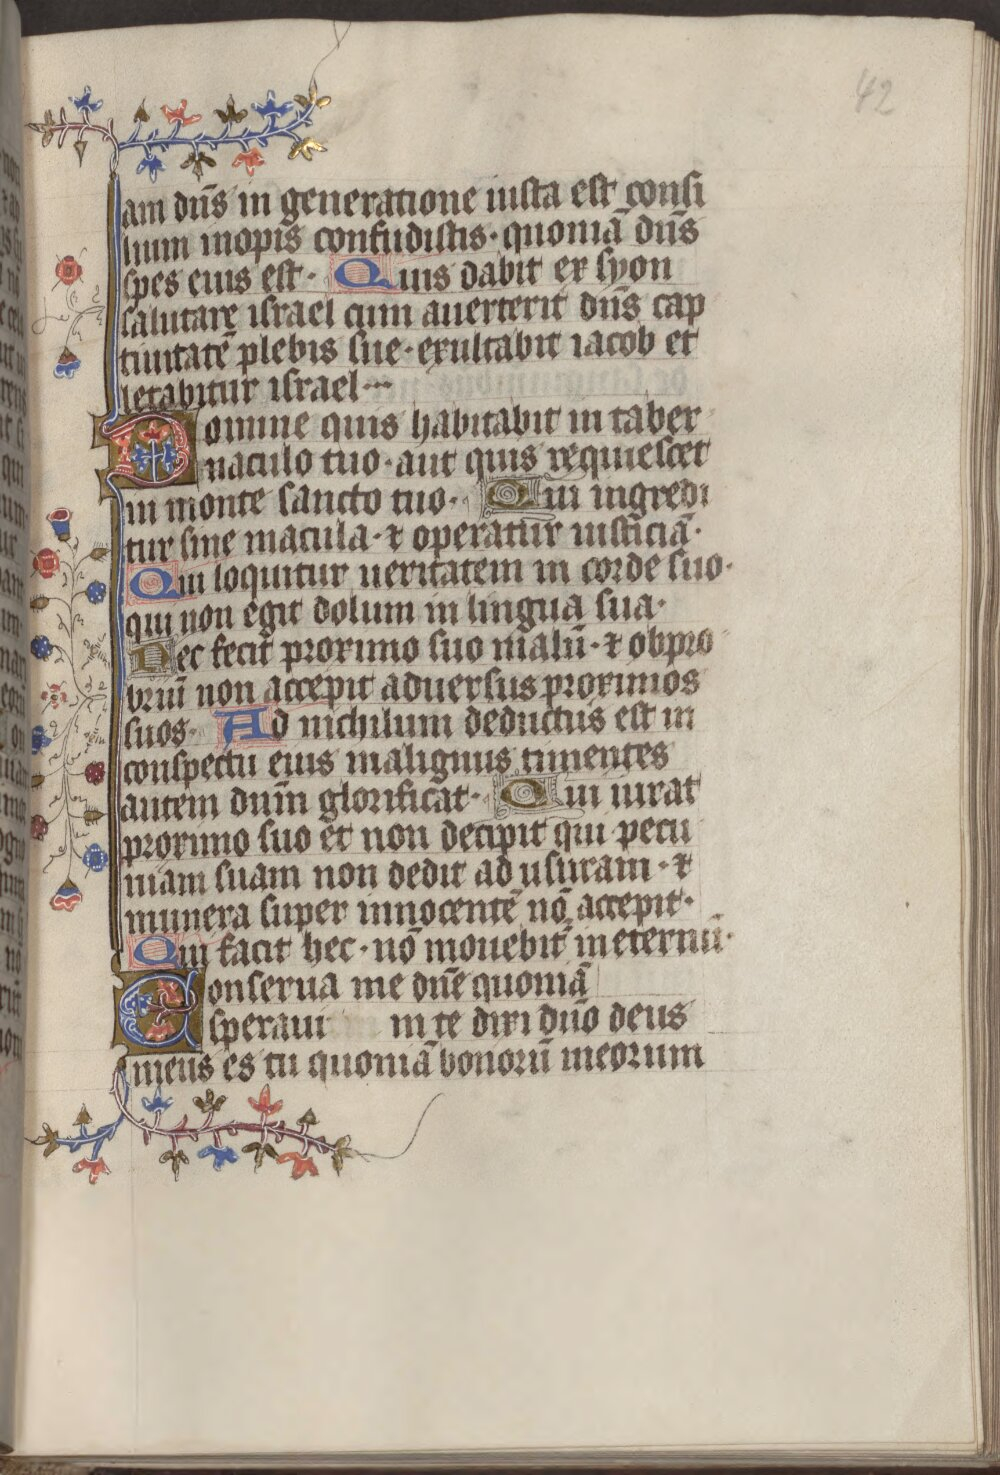 42
am dn̄s in generatione iusta est consi
lium inopis confudistis · quoniā dn̄s
spes eius est · Quis dabit ex syon
salutare israel cum auerterit dn̄s cap
tiuitatē plebis sue · exultabit iacob et
letabitur israel ·
Domine quis habitabit in taber
naculo tuo · aut quis requiescet
in monte sancto tuo · Qui ingredi
tur sine macula · ⁊ operatur iusticiā ·
Qui loquitur ueritatem in corde suo ·
qui non egit dolum in lingua sua ·
Nec fecit proximo suo malū · ⁊ obpro
briū non accepit aduersus proximos
suos · Ad nichilum deductus est in
conspectu eius malignus timentes
autem dūm glorificat · Qui iurat
proximo suo et non decipit qui pecu
niam suam non dedit ad usuram · ⁊
munera super innocentē nō accepit ·
Qui facit hec · nō mouebit̄ in eternū ·
Conserua me dn̄e quoniā
speraui in te dixi dn̄o deus
meus es tu quoniā bonorū meorum